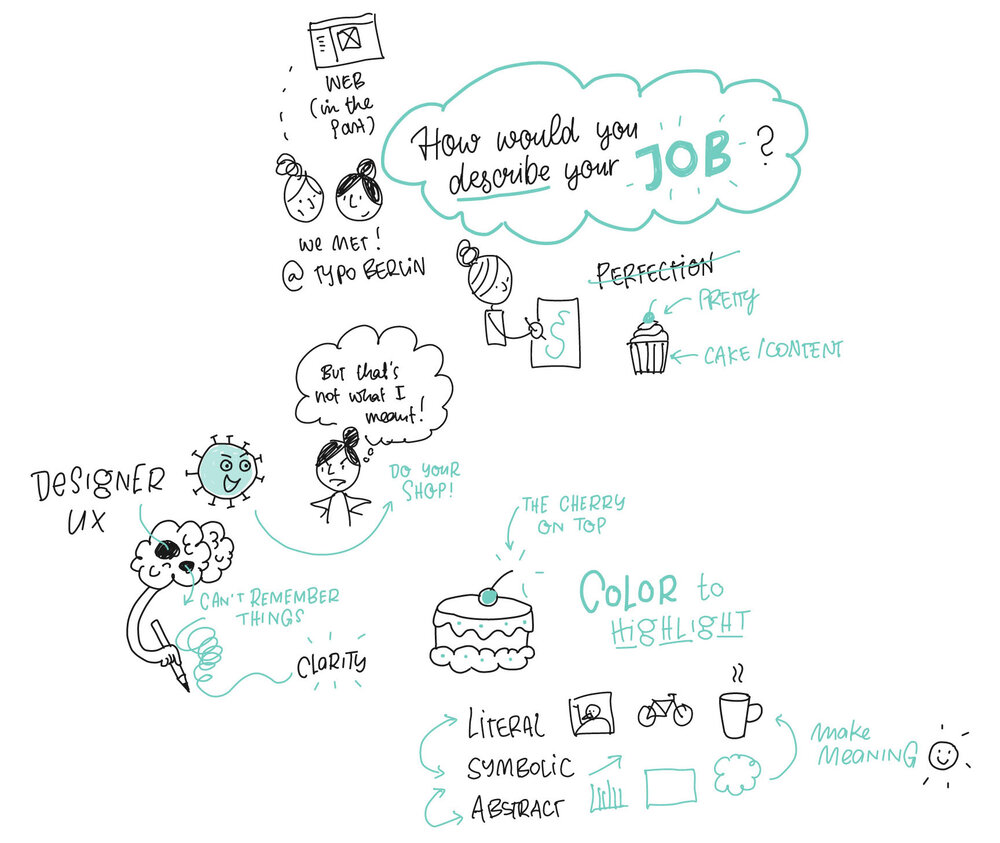 WEB
(in the
past)
How would you
describe your JOB ?
WE MET!
@ TYPO BERLIN
PERFECTION
PRETTY
CAKE/CONTENT
BUT that's
not what I
meant!
DESIGNER
UX
DO YOUR
SHOP!
THE CHERRY
ON TOP
CAN'T REMEMBER
THINGS
CLARITY
COLOR to
HIGHLIGHT
LITERAL
SYMBOLIC
ABSTRACT
make
MEANING